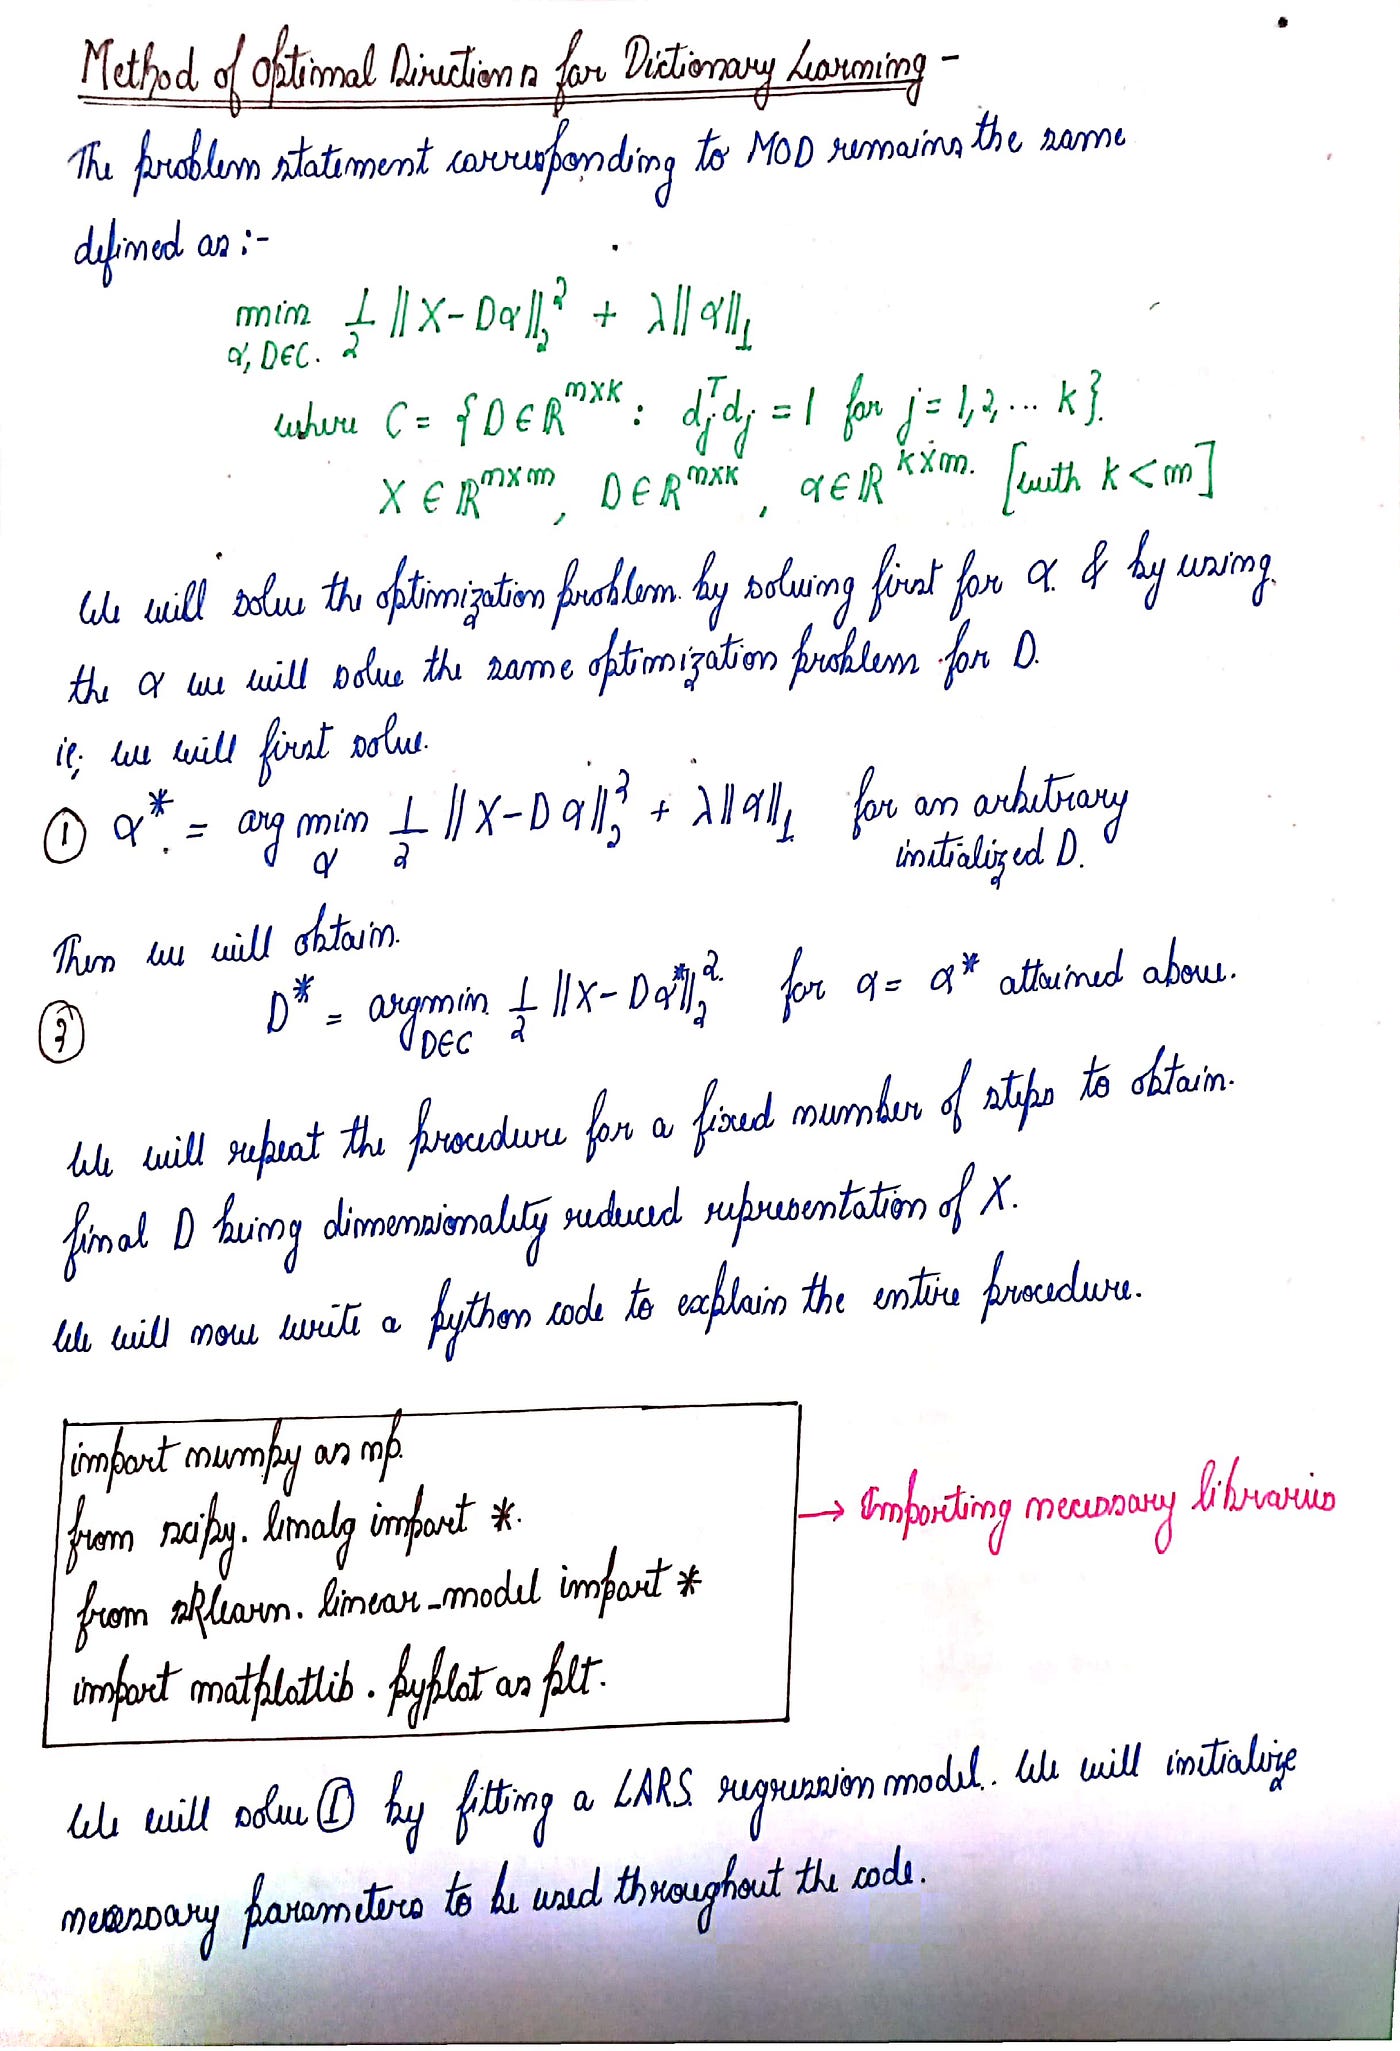 Method of Optimal Directions for Dictionary Learning -
The problem statement corresponding to MOD remains the same
defined as :-
min 1/2 ||X - Dα||₂² + λ||α||₁
α, D∈C.
where C = {D ∈ ℝ^{m×k} : d_j^T d_j = 1 for j = 1,2,... k}.
X ∈ ℝ^{m×n}, D ∈ ℝ^{m×k}, α ∈ ℝ^{k×n}. [with k < n]
We will solve the optimization problem by solving first for α & by using
the α we will solve the same optimization problem for D.
ie; we will first solve.
① α* = arg min 1/2 ||X - Dα||₂² + λ||α||₁ for an arbitrary
α initialized D.
Then we will obtain.
② D* = argmin 1/2 ||X - Dα*||₂² for α = α* attained above.
D∈C
We will repeat the procedure for a fixed number of steps to obtain.
final D being dimensionality reduced representation of X.
We will now write a python code to explain the entire procedure.
import numpy as np.
from scipy. linalg import *.
from sklearn. linear_model import *
import matplotlib . pyplot as plt.
→ Importing necessary libraries
We will solve ① by fitting a LARS regression model. We will initialize
necessary parameters to be used throughout the code.